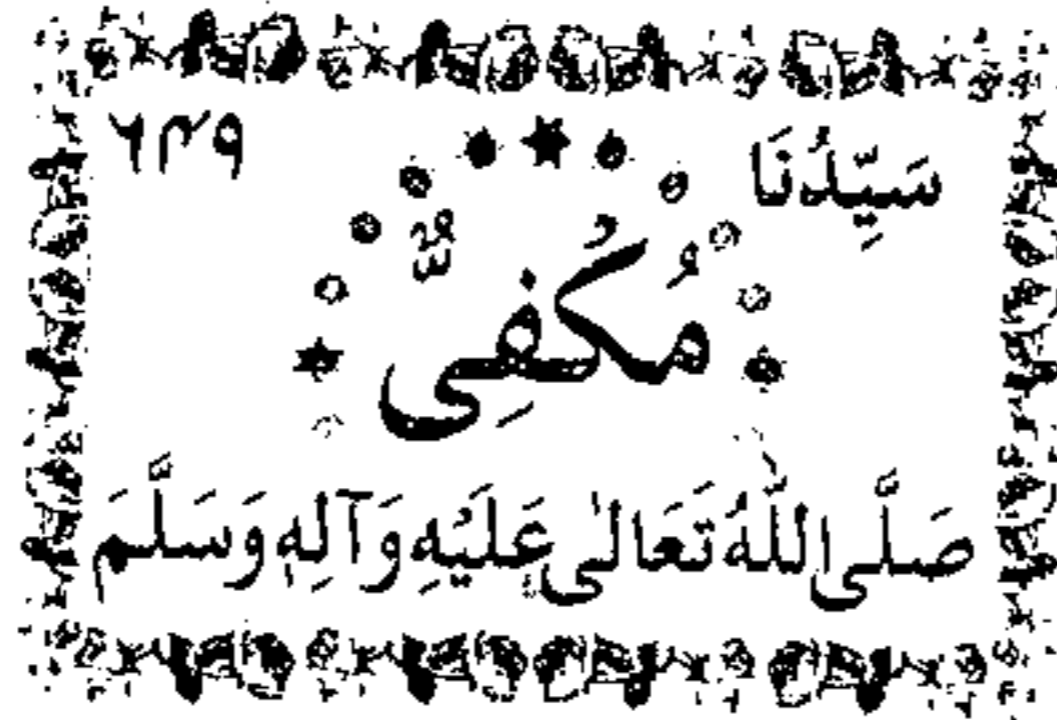 سَيِّدُنَا ۶۴۹
مُكْفِیٌّ
صَلَّى اللّٰهُ تَعَالٰى عَلَيْهِ وَآلِهِ وَسَلَّمَ